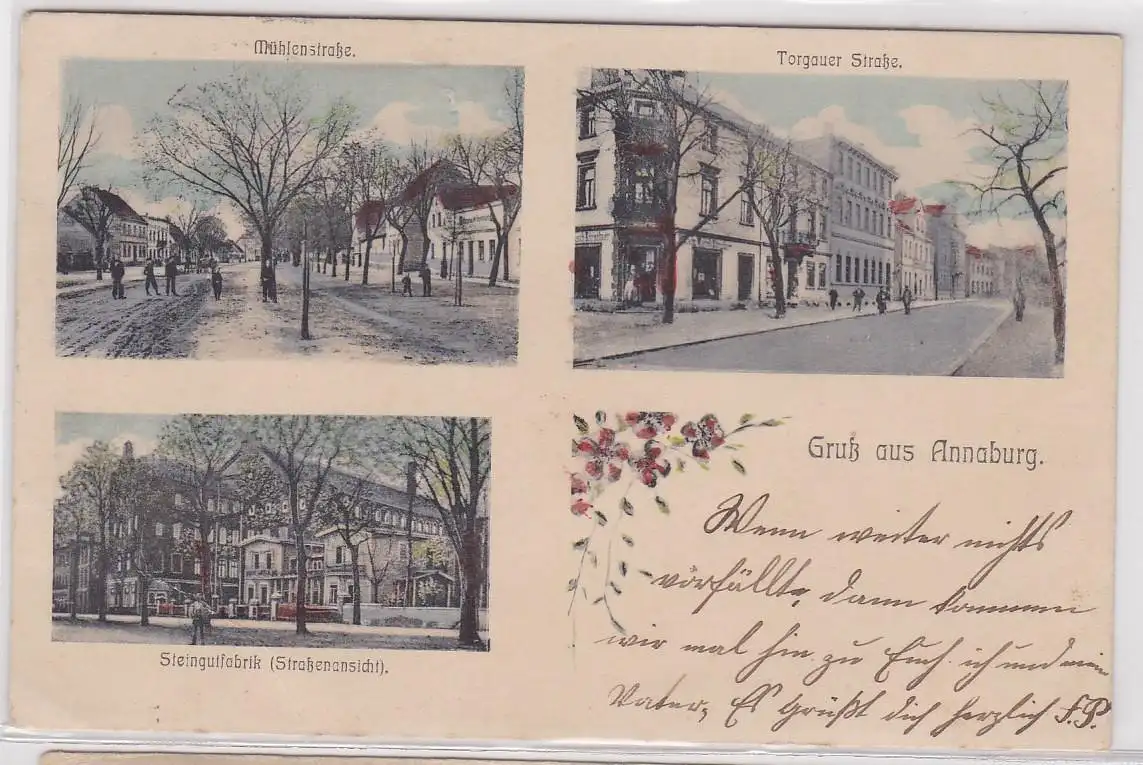 Mühlenstraße.
Torgauer Straße.
Steingutfabrik (Straßenansicht).
Gruß aus Annaburg.
Wenn weiter nichts
vorfällt, dann kommen
wir mal hin zu Euch ich und mein
Vater, Es Grüßt dich herzlich F.P.